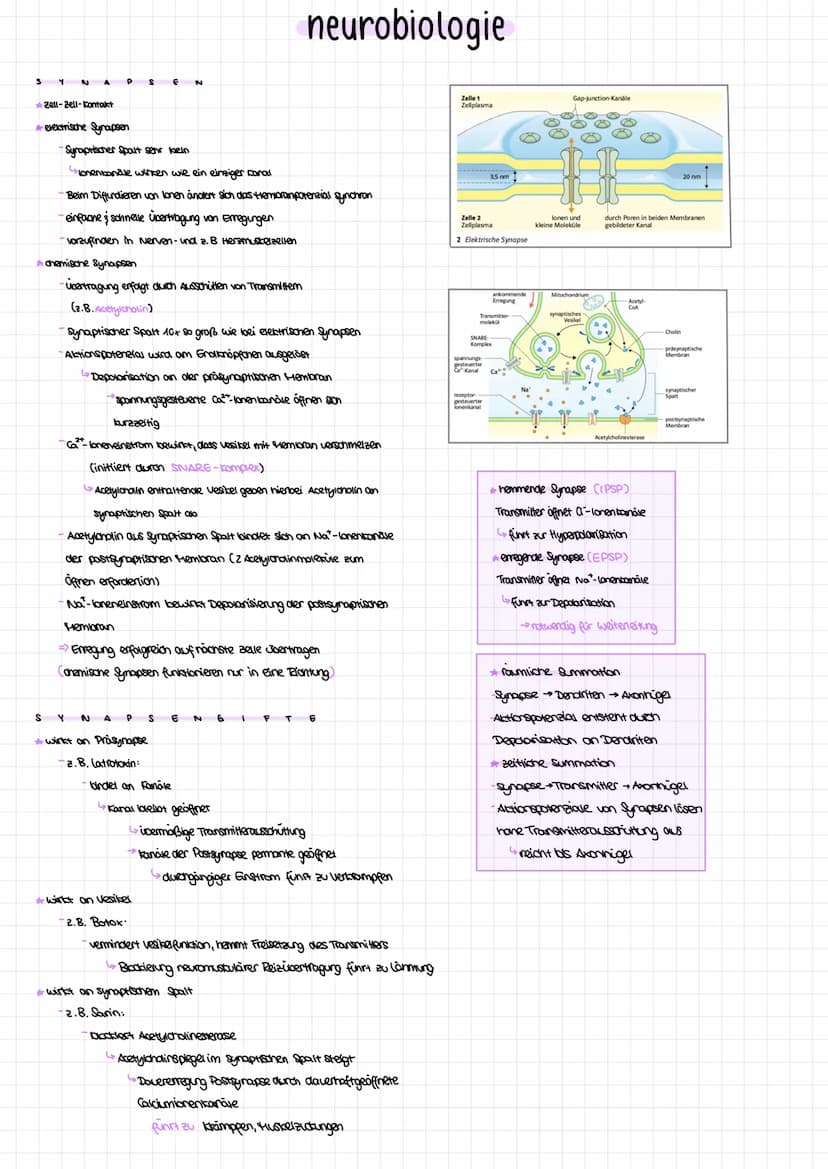 neurobiologie
SYNAPSEN
* Zell-Zell-Kontakt
* elektrische Synapsen
- Synaptischer Spalt sehr klein
↳ Ionenkanäle wirken wie ein einziger Kanal
- Beim Diffundieren von Ionen ändert sich das Membranpotenzial synchron
- einfache & schnelle Übertragung von Erregungen
- vorzufinden in Nerven- und z.B Herzmuskelzellen
* chemische Synapsen
- Übertragung erfolgt durch Ausschütten von Transmittern
(z.B. Acetylcholin)
- Synaptischer Spalt 10x so groß wie bei elektrischen Synapsen
- Aktionspotenzial wird am Endknöpfchen ausgelöst
↳ Depolarisation an der präsynaptischen Membran
→ spannungsgesteuerte Ca²⁺-Ionenkanäle öffnen sich
kurzzeitig
- Ca²⁺-Ioneneinstrom bewirkt, dass Vesikel mit Membran verschmelzen
(initiiert durch SNARE-Komplex)
↳ Acetylcholin enthaltende Vesikel geben hierbei Acetylcholin an
synaptischen Spalt ab
- Acetylcholin aus Synaptischen Spalt bindet sich an Na⁺-Ionenkanäle
der postsynaptischen Membran (2 Acetylcholinmoleküle zum
Öffnen erforderlich)
- Na⁺-Ioneneinstrom bewirkt Depolarisierung der postsynaptischen
Membran
⇒ Erregung erfolgreich auf nächste Zelle übertragen
(chemische Synapsen funktionieren nur in eine Richtung)
SYNAPSENGIFTE
* wirkt an Präsynapse
- z.B. Latrotoxin:
- bindet an Kanäle
↳ Kanal bleibt geöffnet
↳ übermäßige Transmitterausschüttung
→ Kanäle der Postsynapse permante geöffnet
↳ durchgängiger Einstrom führt zu Verkrampfen
* wirkt an Vesikel
- z.B. Botox:
- vermindert Vesikelfunktion, hemmt Freisetzung des Transmitters
↳ Blockierung neuromuskulärer Reizübertragung führt zu Lähmung
* wirkt an synaptischem Spalt
- z.B. Sarin:
- blockiert Acetylcholinesterase
↳ Acetylcholinspiegel im synaptischen Spalt steigt
↳ Dauererregung Postsynapse durch dauerhaft geöffnete
Calciumionenkanäle
führt zu Krämpfen, Muskelzuckungen
Zelle 1
Zellplasma
Gap-junction-Kanäle
3,5 nm
20 nm
Zelle 2
Zellplasma
Ionen und
kleine Moleküle
durch Poren in beiden Membranen
gebildeter Kanal
2 Elektrische Synapse
ankommende
Erregung
Mitochondrium
Acetyl-
CoA
Transmitter-
molekül
synaptisches
Vesikel
SNARE-
Komplex
Cholin
präsynaptische
Membran
spannungs-
gesteuerter
Ca²⁺-Kanal
Ca²⁺
Na⁺
rezeptor-
gesteuerter
Ionenkanal
synaptischer
Spalt
postsynaptische
Membran
Acetylcholinesterase
* hemmende Synapse (IPSP)
Transmitter öffnet Cl⁻-Ionenkanäle
↳ führt zur Hyperpolarisation
* erregende Synapse (EPSP)
Transmitter öffnet Na⁺-Ionenkanäle
↳ führt zur Depolarisation
→ notwendig für Weiterleitung
* räumliche Summation
- Synapse → Dendriten → Axonhügel
- Aktionspotenzial entsteht durch
Depolarisation an Dendriten
* zeitliche Summation
- Synapse → Transmitter → Axonhügel
- Aktionspotenziale von Synapsen lösen
hohe Transmitterausschüttung aus
↳ reicht bis Axonhügel